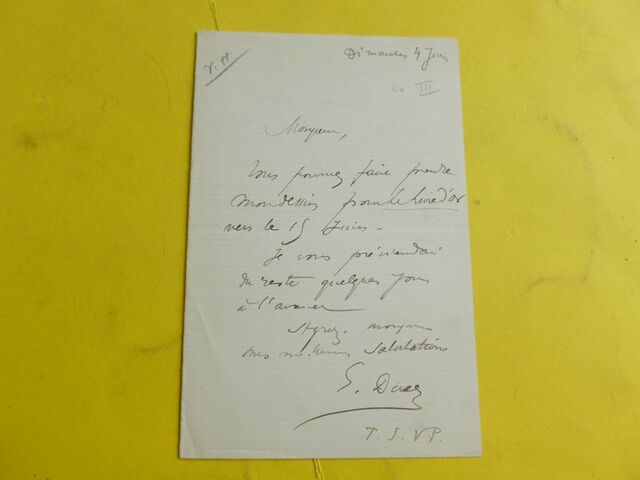 V. H
Dimanche 4 Juin
III
Monsieur,
Vous pouvez faire prendre
mon dessin pour le Livre d'or
vers le 15 Juin.
Je vous préviendrai
du reste quelques jours
à l'avance
Agréez, monsieur
mes meilleures salutations
T. S. V. P.